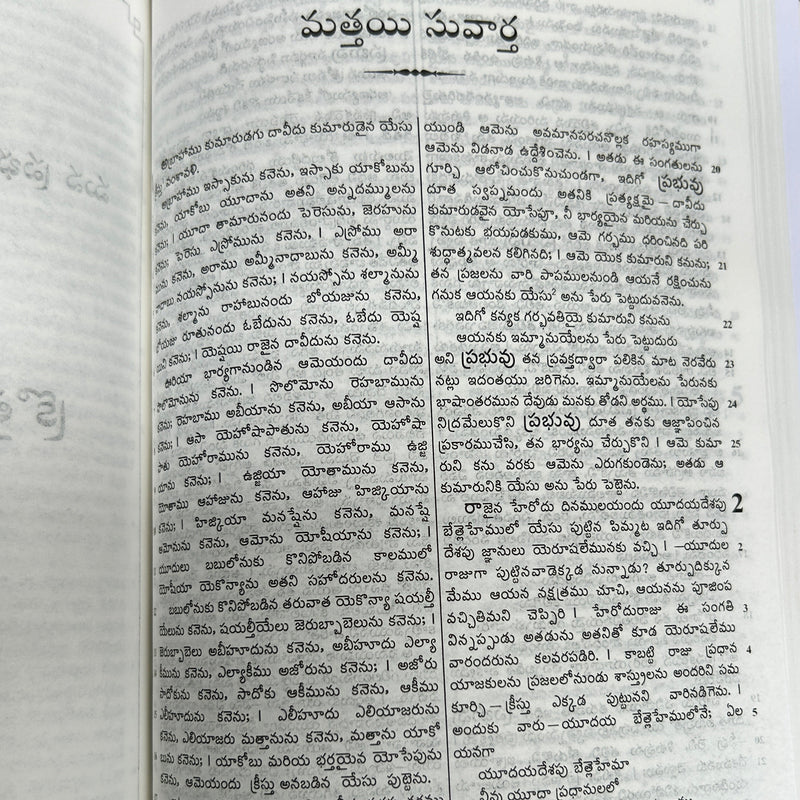 మత్తయి సువార్త
అబ్రాహాము కుమారుడగు దావీదు కుమారుడైన యేసు
వంశావళి.
అబ్రాహాము ఇస్సాకును కనెను, ఇస్సాకు యాకోబును
కనెను, యాకోబు యూదాను అతని అన్నదమ్ములను
యూదా తామారునందు పెరెసును, జెరహును
కనెను; పెరెసు ఎస్రోమును కనెను, । ఎస్రోము అరా
మును కనెను, అరాము అమ్మీనాదాబును కనెను, అమ్మీ
నాదాబు నయస్సోనును కనెను; । నయస్సోను శల్మానును
కనెను, శల్మాను రాహాబునందు బోయజును కనెను,
బోయజు రూతునందు ఓబేదును కనెను, ఓబేదు యెష్ష
యిని కనెను; । యెష్షయి రాజైన దావీదును కనెను.
ఊరియా భార్యగానుండిన ఆమెయందు దావీదు
సొలొమోనును కనెను. । సొలొమోను రెహబామును
కనెను; రెహబాము అబీయాను కనెను, అబీయా ఆసాను
కనెను; । ఆసా యెహోషాపాతును కనెను, యెహోషా
పాతు యెహోరామును కనెను, యెహోరాము ఉజ్జి
యాను కనెను; । ఉజ్జియా యోతామును కనెను,
యోతాము ఆహాజును కనెను, ఆహాజు హిజ్కియాను
కనెను; । హిజ్కియా మనష్షేను కనెను, మనష్షే
ఆమోనును కనెను, ఆమోను యోషీయాను కనెను; ।
యూదులు బబులోనుకు కొనిపోబడిన కాలములో
యోషీయా యెకొన్యాను అతని సహోదరులను కనెను.
బబులోనుకు కొనిపోబడిన తరువాత యెకొన్యా షయల్తీ
యేలును కనెను, షయల్తీయేలు జెరుబ్బాబెలును కనెను; ।
జెరుబ్బాబెలు అబీహూదును కనెను, అబీహూదు ఎల్యా
కీమును కనెను, ఎల్యాకీము అజోరును కనెను; । అజోరు
సాదోకును కనెను, సాదోకు ఆకీమును కనెను, ఆకీము
ఎలీహూదును కనెను; । ఎలీహూదు ఎలియాజరును
కనెను, ఎలియాజరు మత్తానును కనెను, మత్తాను యాకో
బును కనెను; । యాకోబు మరియ భర్తయైన యోసేపును
కనెను, ఆమెయందు క్రీస్తు అనబడిన యేసు పుట్టెను.
యుండి ఆమెను అవమానపరచనొల్లక రహస్యముగా
ఆమెను విడనాడ ఉద్దేశించెను. । అతడు ఈ సంగతులను 20
గూర్చి ఆలోచించుకొనుచుండగా, ఇదిగో ప్రభువు
దూత స్వప్నమందు అతనికి ప్రత్యక్షమై — దావీదు
కుమారుడవైన యోసేపూ, నీ భార్యయైన మరియను చేర్చు
కొనుటకు భయపడకుము, ఆమె గర్భము ధరించినది పరి
శుద్ధాత్మవలన కలిగినది; । ఆమె యొక కుమారుని కనును; 21
తన ప్రజలను వారి పాపములనుండి ఆయనే రక్షించును
గనుక ఆయనకు యేసు² అను పేరు పెట్టుదువనెను.
ఇదిగో కన్యక గర్భవతియై కుమారుని కనును 22
ఆయనకు ఇమ్మానుయేలను పేరు పెట్టుదురు
అని ప్రభువు తన ప్రవక్తద్వారా పలికిన మాట నెరవేరు 23
నట్లు ఇదంతయు జరిగెను. ఇమ్మానుయేలను పేరునకు
భాషాంతరమున దేవుడు మనకు తోడని అర్థము. । యోసేపు 24
నిద్రమేలుకొని ప్రభువు దూత తనకు ఆజ్ఞాపించిన
ప్రకారముచేసి, తన భార్యను చేర్చుకొని । ఆమె కుమా 25
రుని కను వరకు ఆమెను ఎరుగకుండెను; అతడు ఆ
కుమారునికి యేసు అను పేరు పెట్టెను.
రాజైన హేరోదు దినములయందు యూదయదేశపు 2
బేత్లెహేములో యేసు పుట్టిన పిమ్మట ఇదిగో తూర్పు
దేశపు జ్ఞానులు యెరూషలేమునకు వచ్చి । —యూదుల 2
రాజుగా పుట్టినవాడెక్కడ నున్నాడు? తూర్పుదిక్కున
మేము ఆయన నక్షత్రము చూచి, ఆయనను పూజింప
వచ్చితిమని చెప్పిరి । హేరోదురాజు ఈ సంగతి 3
విన్నప్పుడు అతడును అతనితో కూడ యెరూషలేము
వారందరును కలవరపడిరి. । కాబట్టి రాజు ప్రధాన 4
యాజకులను ప్రజలలోనుండు శాస్త్రులను అందరిని సమ
కూర్చి — క్రీస్తు ఎక్కడ పుట్టునని వారినడిగెను. ।
అందుకు వారు — యూదయ బేత్లెహేములోనే; ఏల 5
యనగా
యూదయదేశపు బేత్లెహేమా
నీవు యూదా ప్రధానులలో